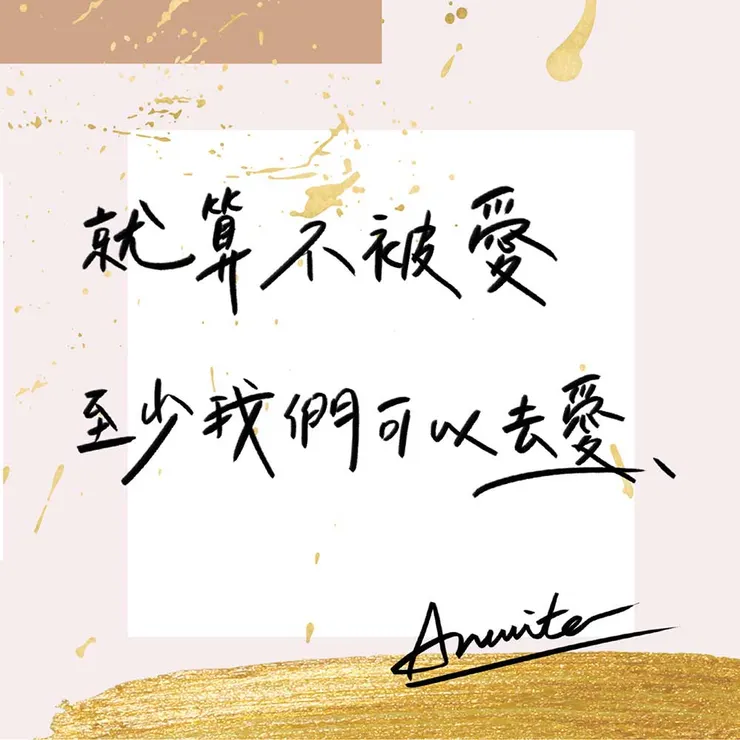 就算不被愛
至少我們可以去愛、
Anwriter